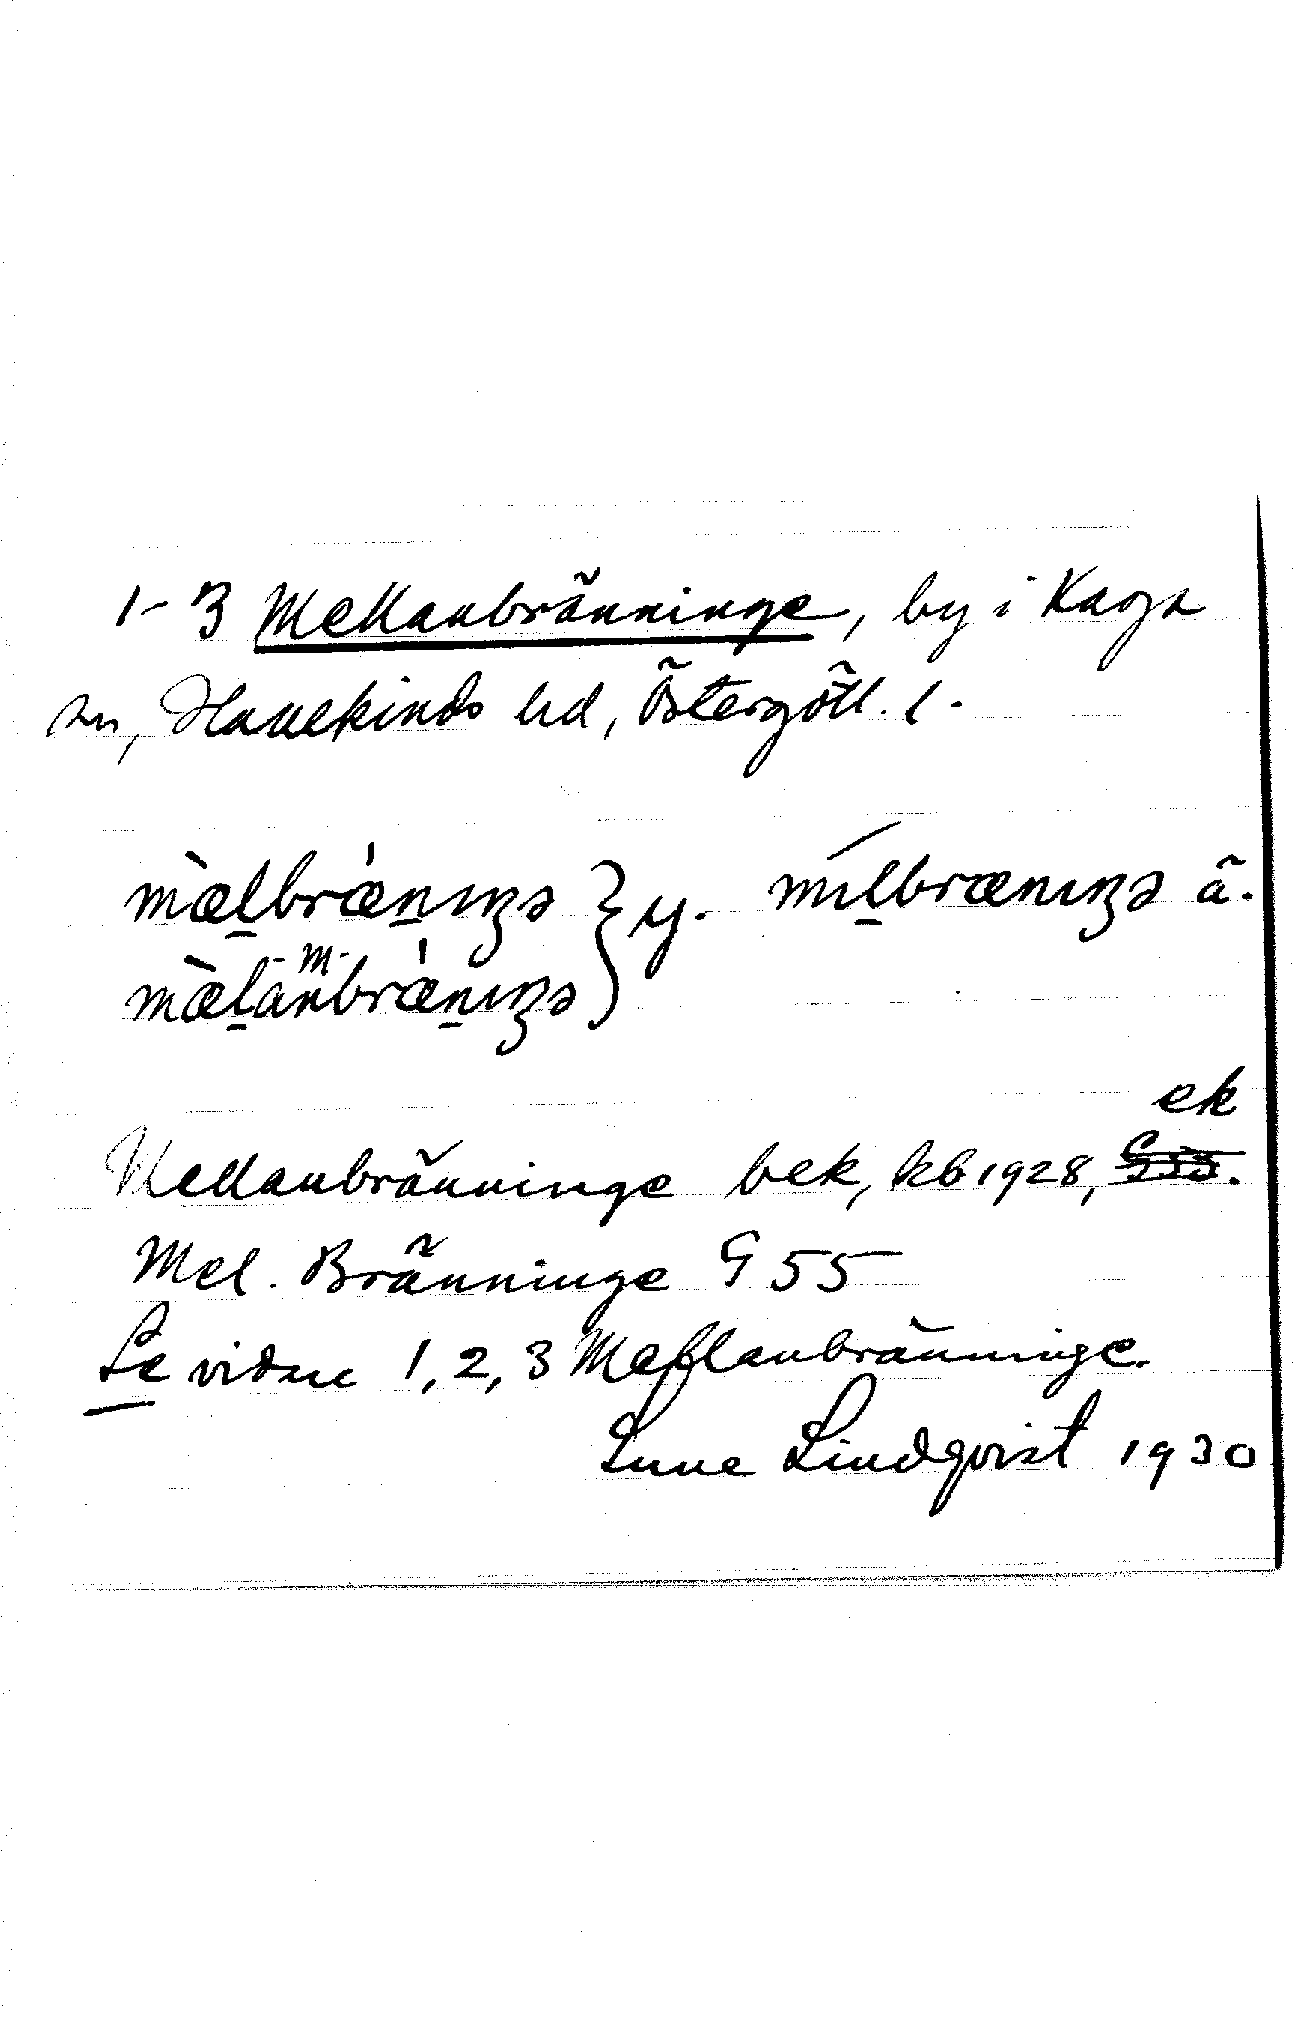 1-3 Mellanbränninge, by i Kaga
sn, Hanekinds hd, Östergötl. l.
mæ̀l̠bræ̀n̠ıŋə } y. míl̠brænıŋə ä.
-m-
mæ̀l̠anbræ̀n̠ıŋə
ek
Mellanbränninge bek, kb 1928, G55.
Mel. Bränninge G 55
Se vidare 1, 2, 3 Mellanbränninge.
Sune Lindqvist 1930